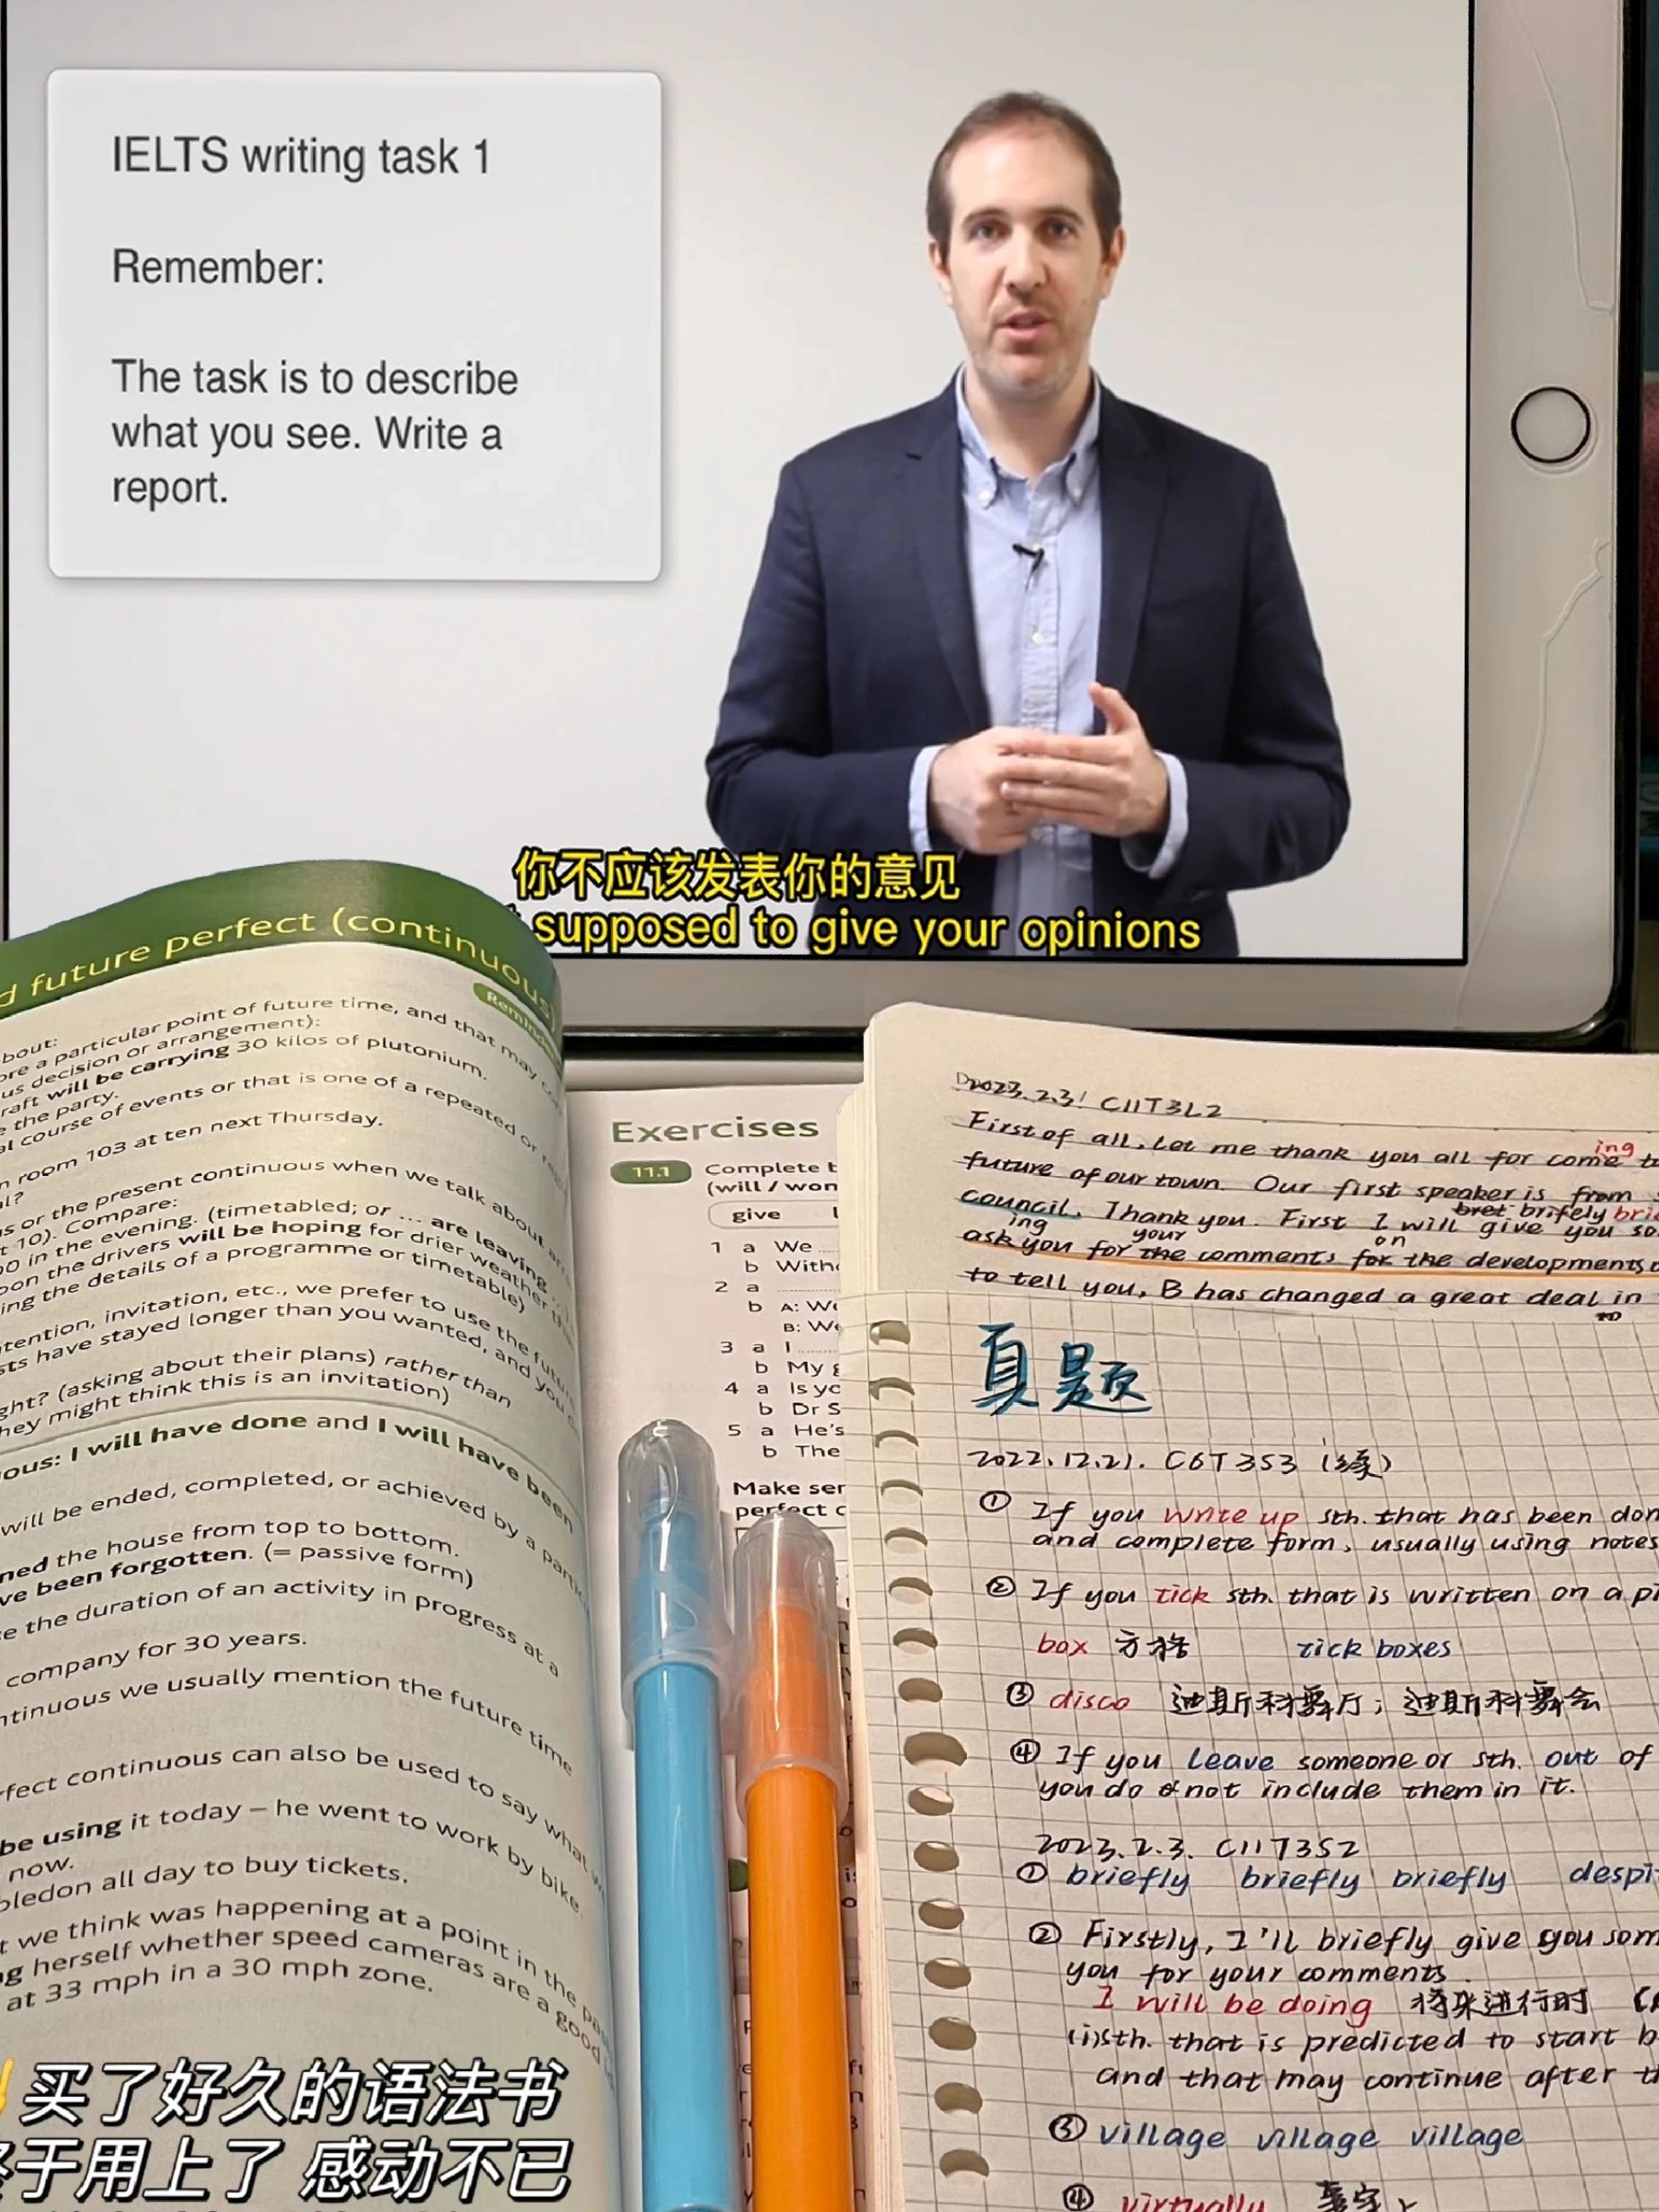 IELTS writing task 1
Remember:
The task is to describe
what you see. Write a
report.
你不应该发表你的意见
supposed to give your opinions
future perfect (continuous)
Reminder
bout:
a particular point of future time, and that may
us decision or arrangement):
raft will be carrying 30 kilos of plutonium.
the party.
course of events or that is one of a repeated or
room 103 at ten next Thursday.
or the present continuous when we talk about
10). Compare:
in the evening. (timetabled; or ... are leaving ...
the drivers will be hoping for drier weather
ing the details of a programme or timetable)
tention, invitation, etc., we prefer to use the
sts have stayed longer than you wanted, and you
ght? (asking about their plans) rather than
hey might think this is an invitation)
ous: I will have done and I will have been
will be ended, completed, or achieved by a
ned the house from top to bottom.
ve been forgotten. (= passive form)
the duration of an activity in progress at a
company for 30 years.
ntinuous we usually mention the future time
rfect continuous can also be used to say what
be using it today – he went to work by bike
now.
bledon all day to buy tickets.
we think was happening at a point in the
herself whether speed cameras are a good
at 33 mph in a 30 mph zone.
买了好久的语法书
终于用上了 感动不已
Exercises
11.1 Complete t
(will / won
give
1 a We
b With
2 a
b A: We
B: We
3 a I
b My
4 a Is yo
b Dr S
5 a He's
b The
Make ser
perfect c
2023.2.3! C11T3L2
First of all, Let me thank you all for come ing
future of our town. Our first speaker is from
bret brifely brie
council. Thank you. First I will give you so
ing your on
ask you for the comments for the developments
to tell you, B has changed a great deal in
to
真题
2022.12.21. C6T3S3 (续)
① If you write up sth. that has been don
and complete form, usually using notes
② If you tick sth. that is written on a pi
box 方格 tick boxes
③ disco 迪斯科舞厅；迪斯科舞会
④ If you leave someone or sth. out of
you do not include them in it.
2023.2.3. C11T3S2
① briefly briefly briefly despi
② Firstly, I'll briefly give you som
you for your comments.
I will be doing 将来进行时
(1) sth. that is predicted to start b
and that may continue after th
③ village village village
④ virtually